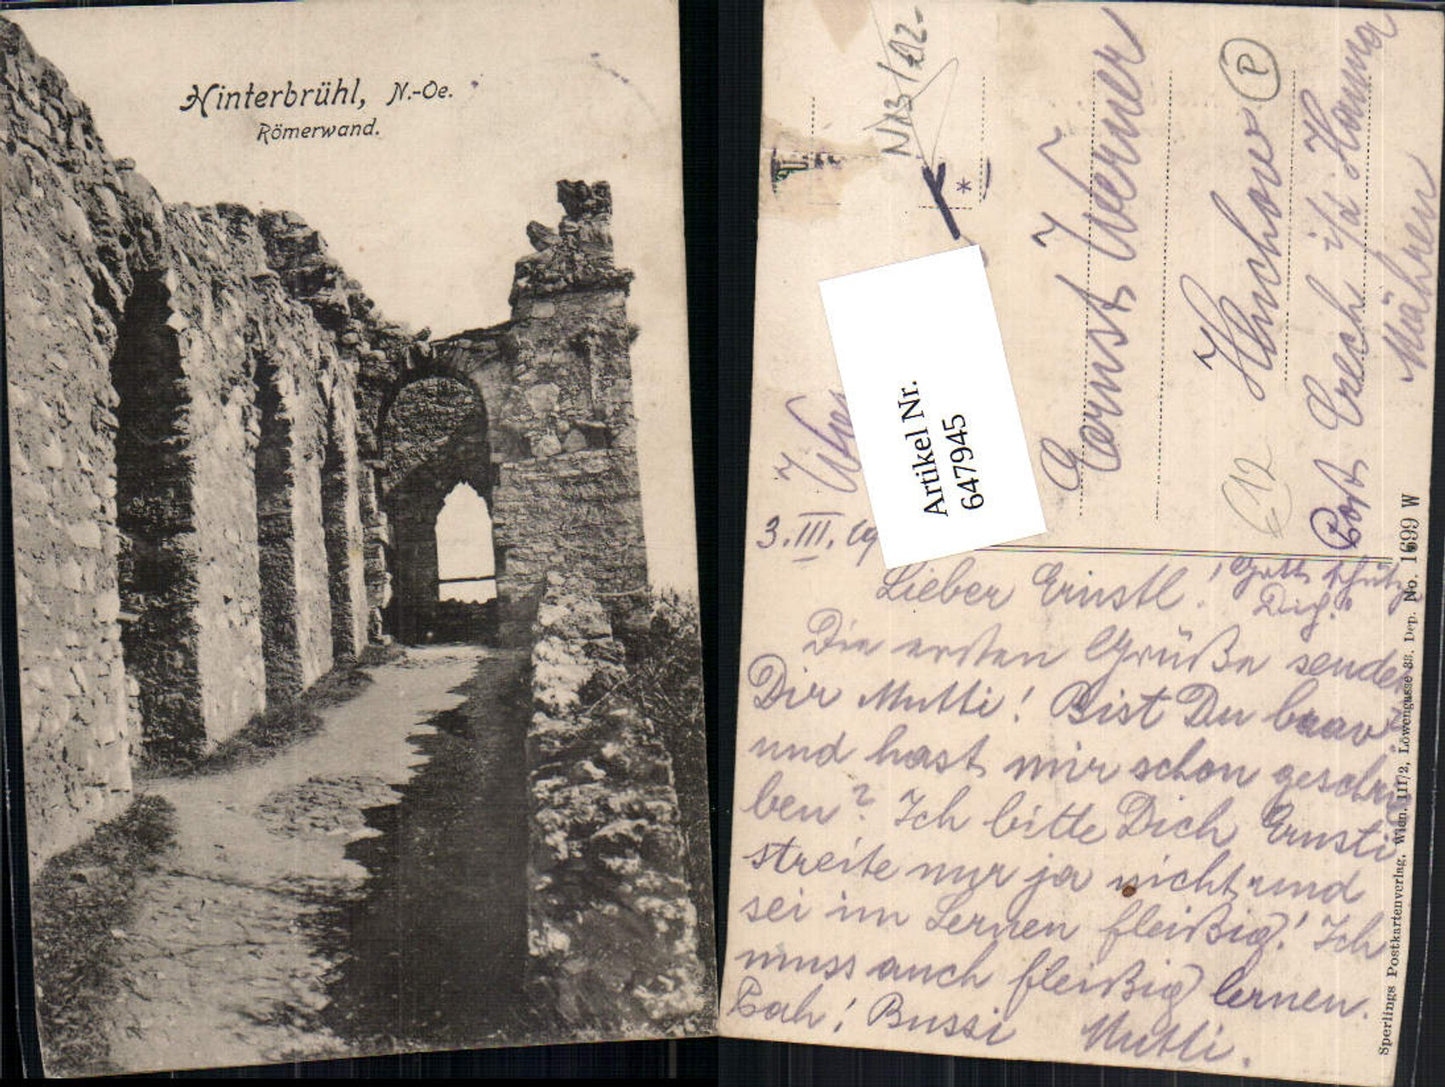 Hinterbrühl, N.-Oe.
Römerwand.
N13/212-
*
Ernst Werner
Hinchower
P
Post Creich i/d Hanna
Mähren
12
Artikel Nr.
647945
3.III.19
Lieber Ernstl!
Gott schütze
Dich!
Die ersten Grüße sendet
Dir Mutti! Bist Du brav
und hast mir schon geschrie
ben? Ich bitte Dich Ernsti
streite nur ja nicht und
sei im Lernen fleißig! Ich
muss auch fleißig lernen.
Pah! Bussi Mutti.
Sperlings Postkartenverlag, Wien, III/2, Löwengasse 33. Dep. No. 1699 W